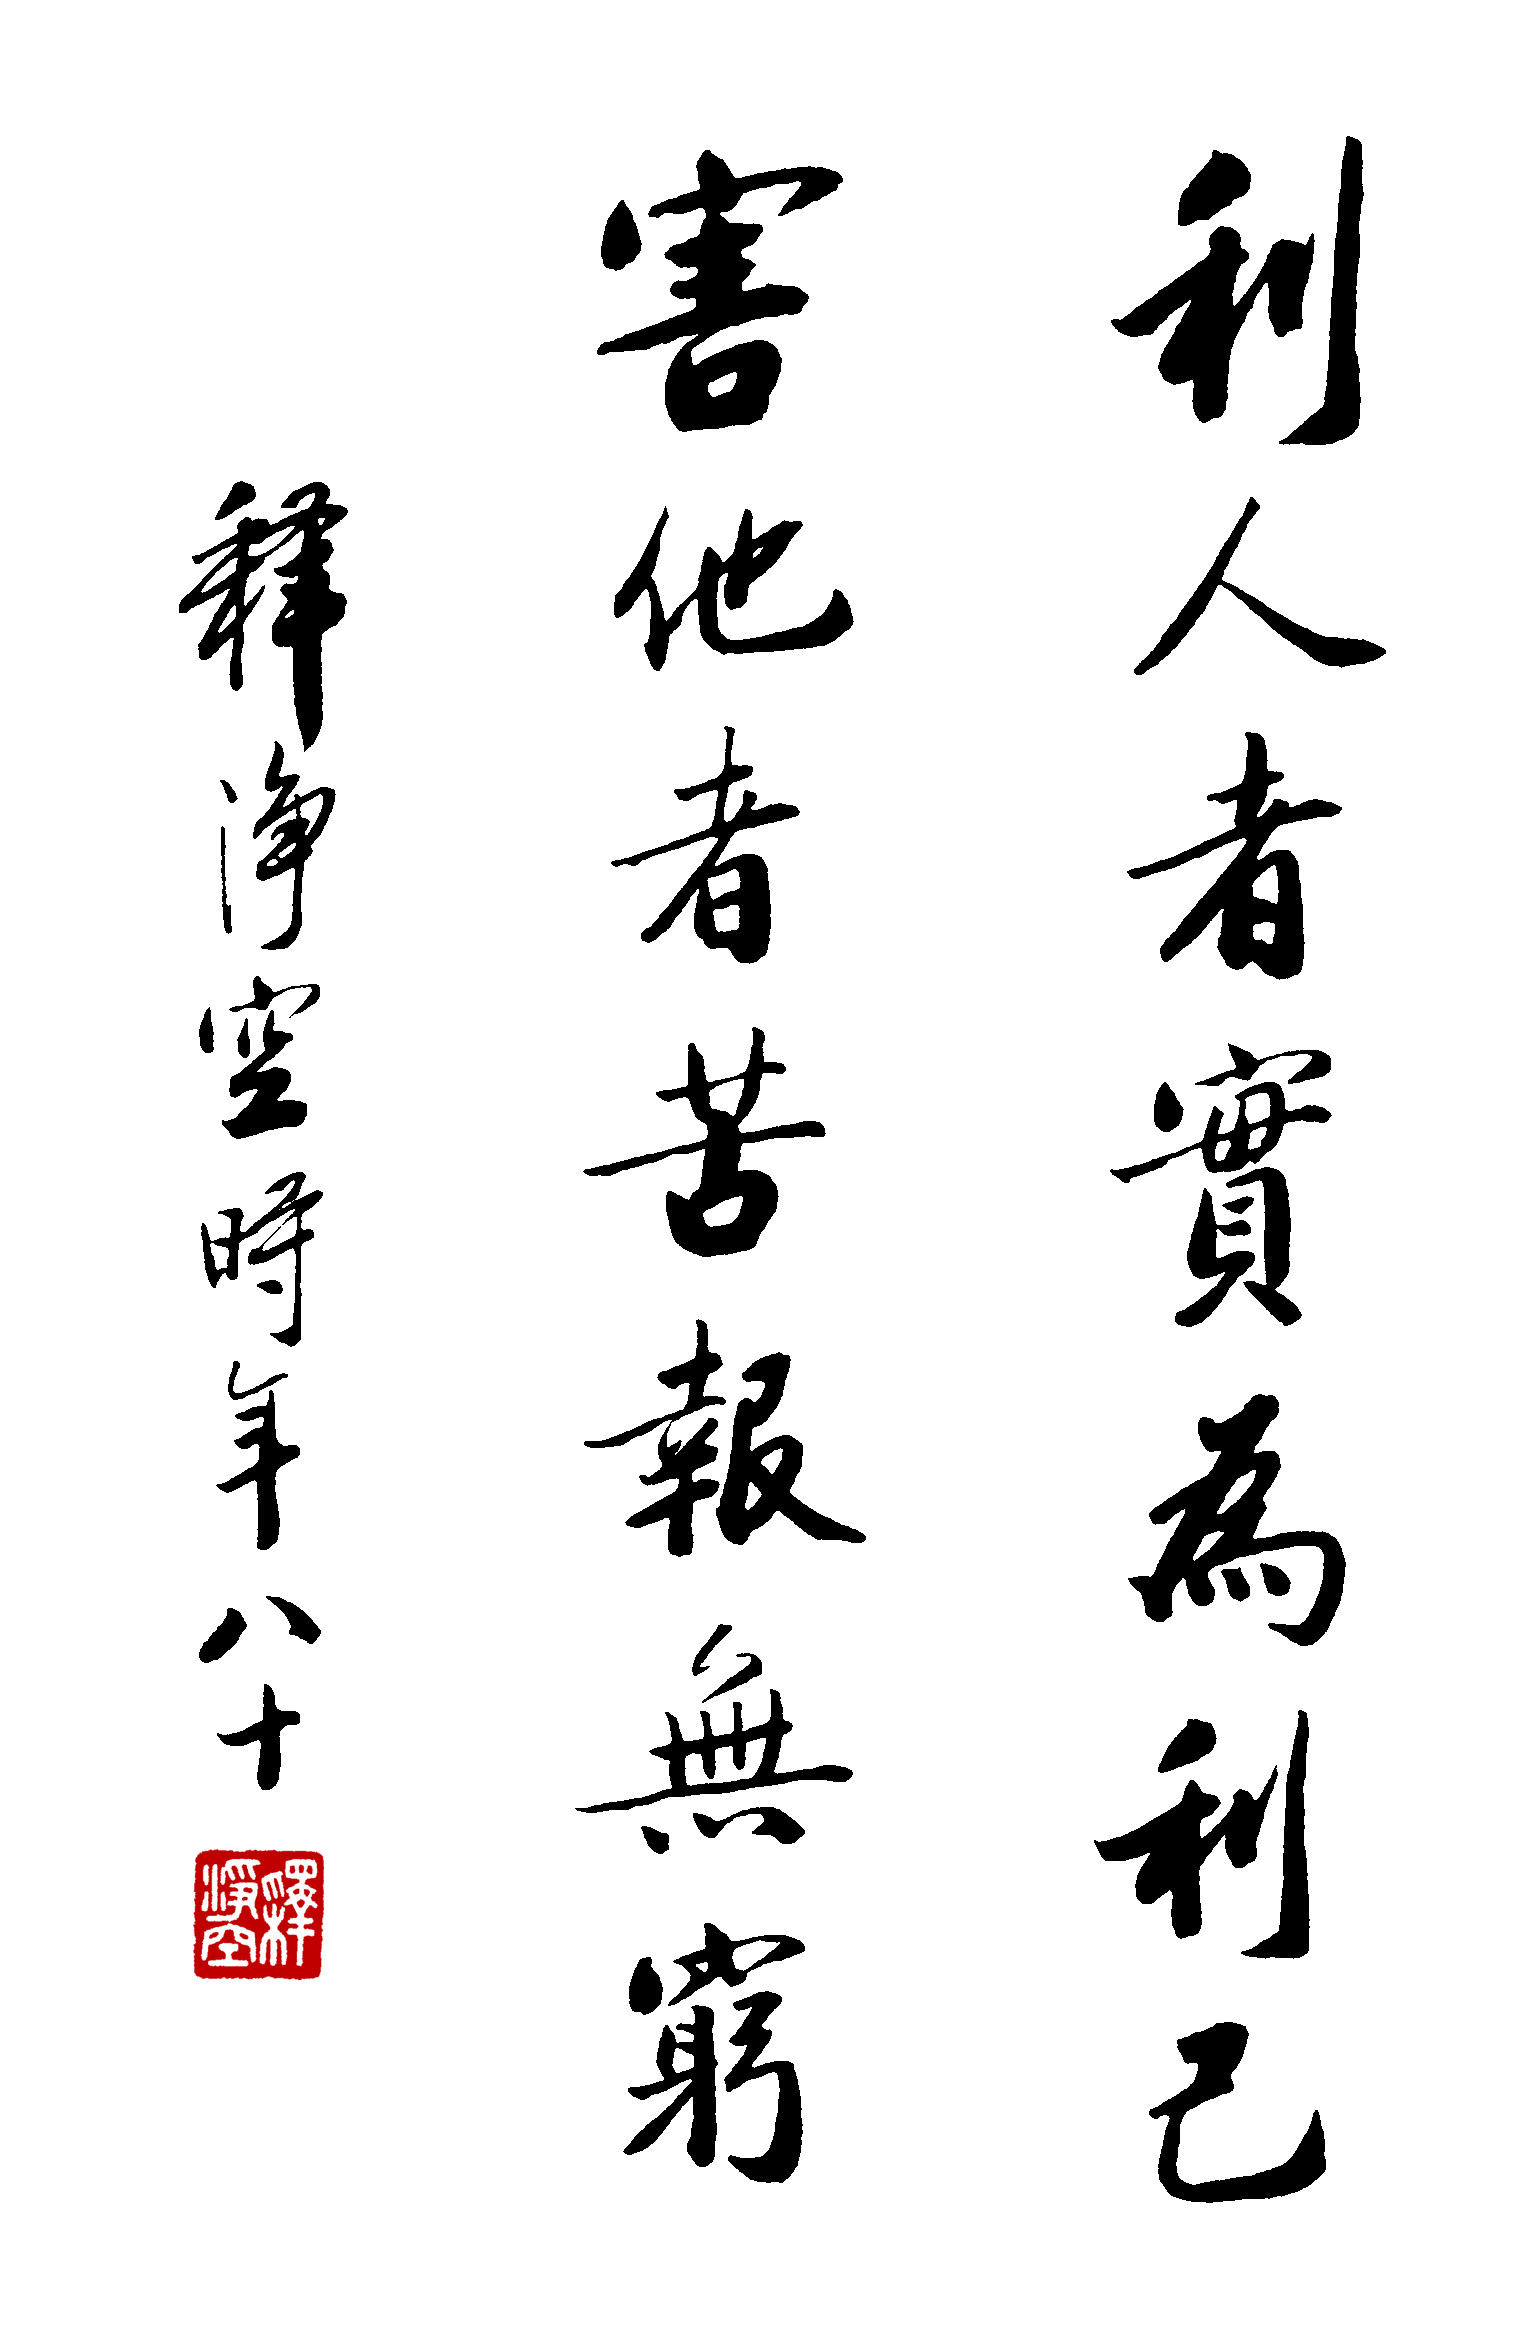 利人者實為利己
害他者苦報無窮
释淨空時年八十
釋淨空